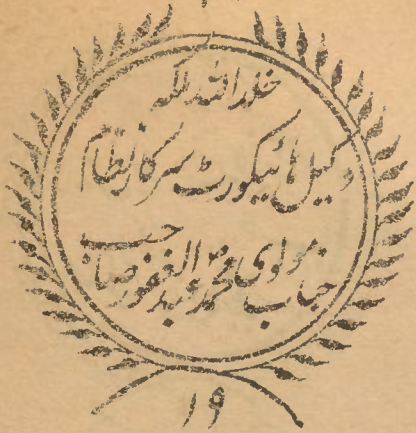 خلد اللہ ملکہ
وکیل ہائیکورٹ سرکار نظام
جناب مولوی محمد عبد الغفور صاحب
۱۹